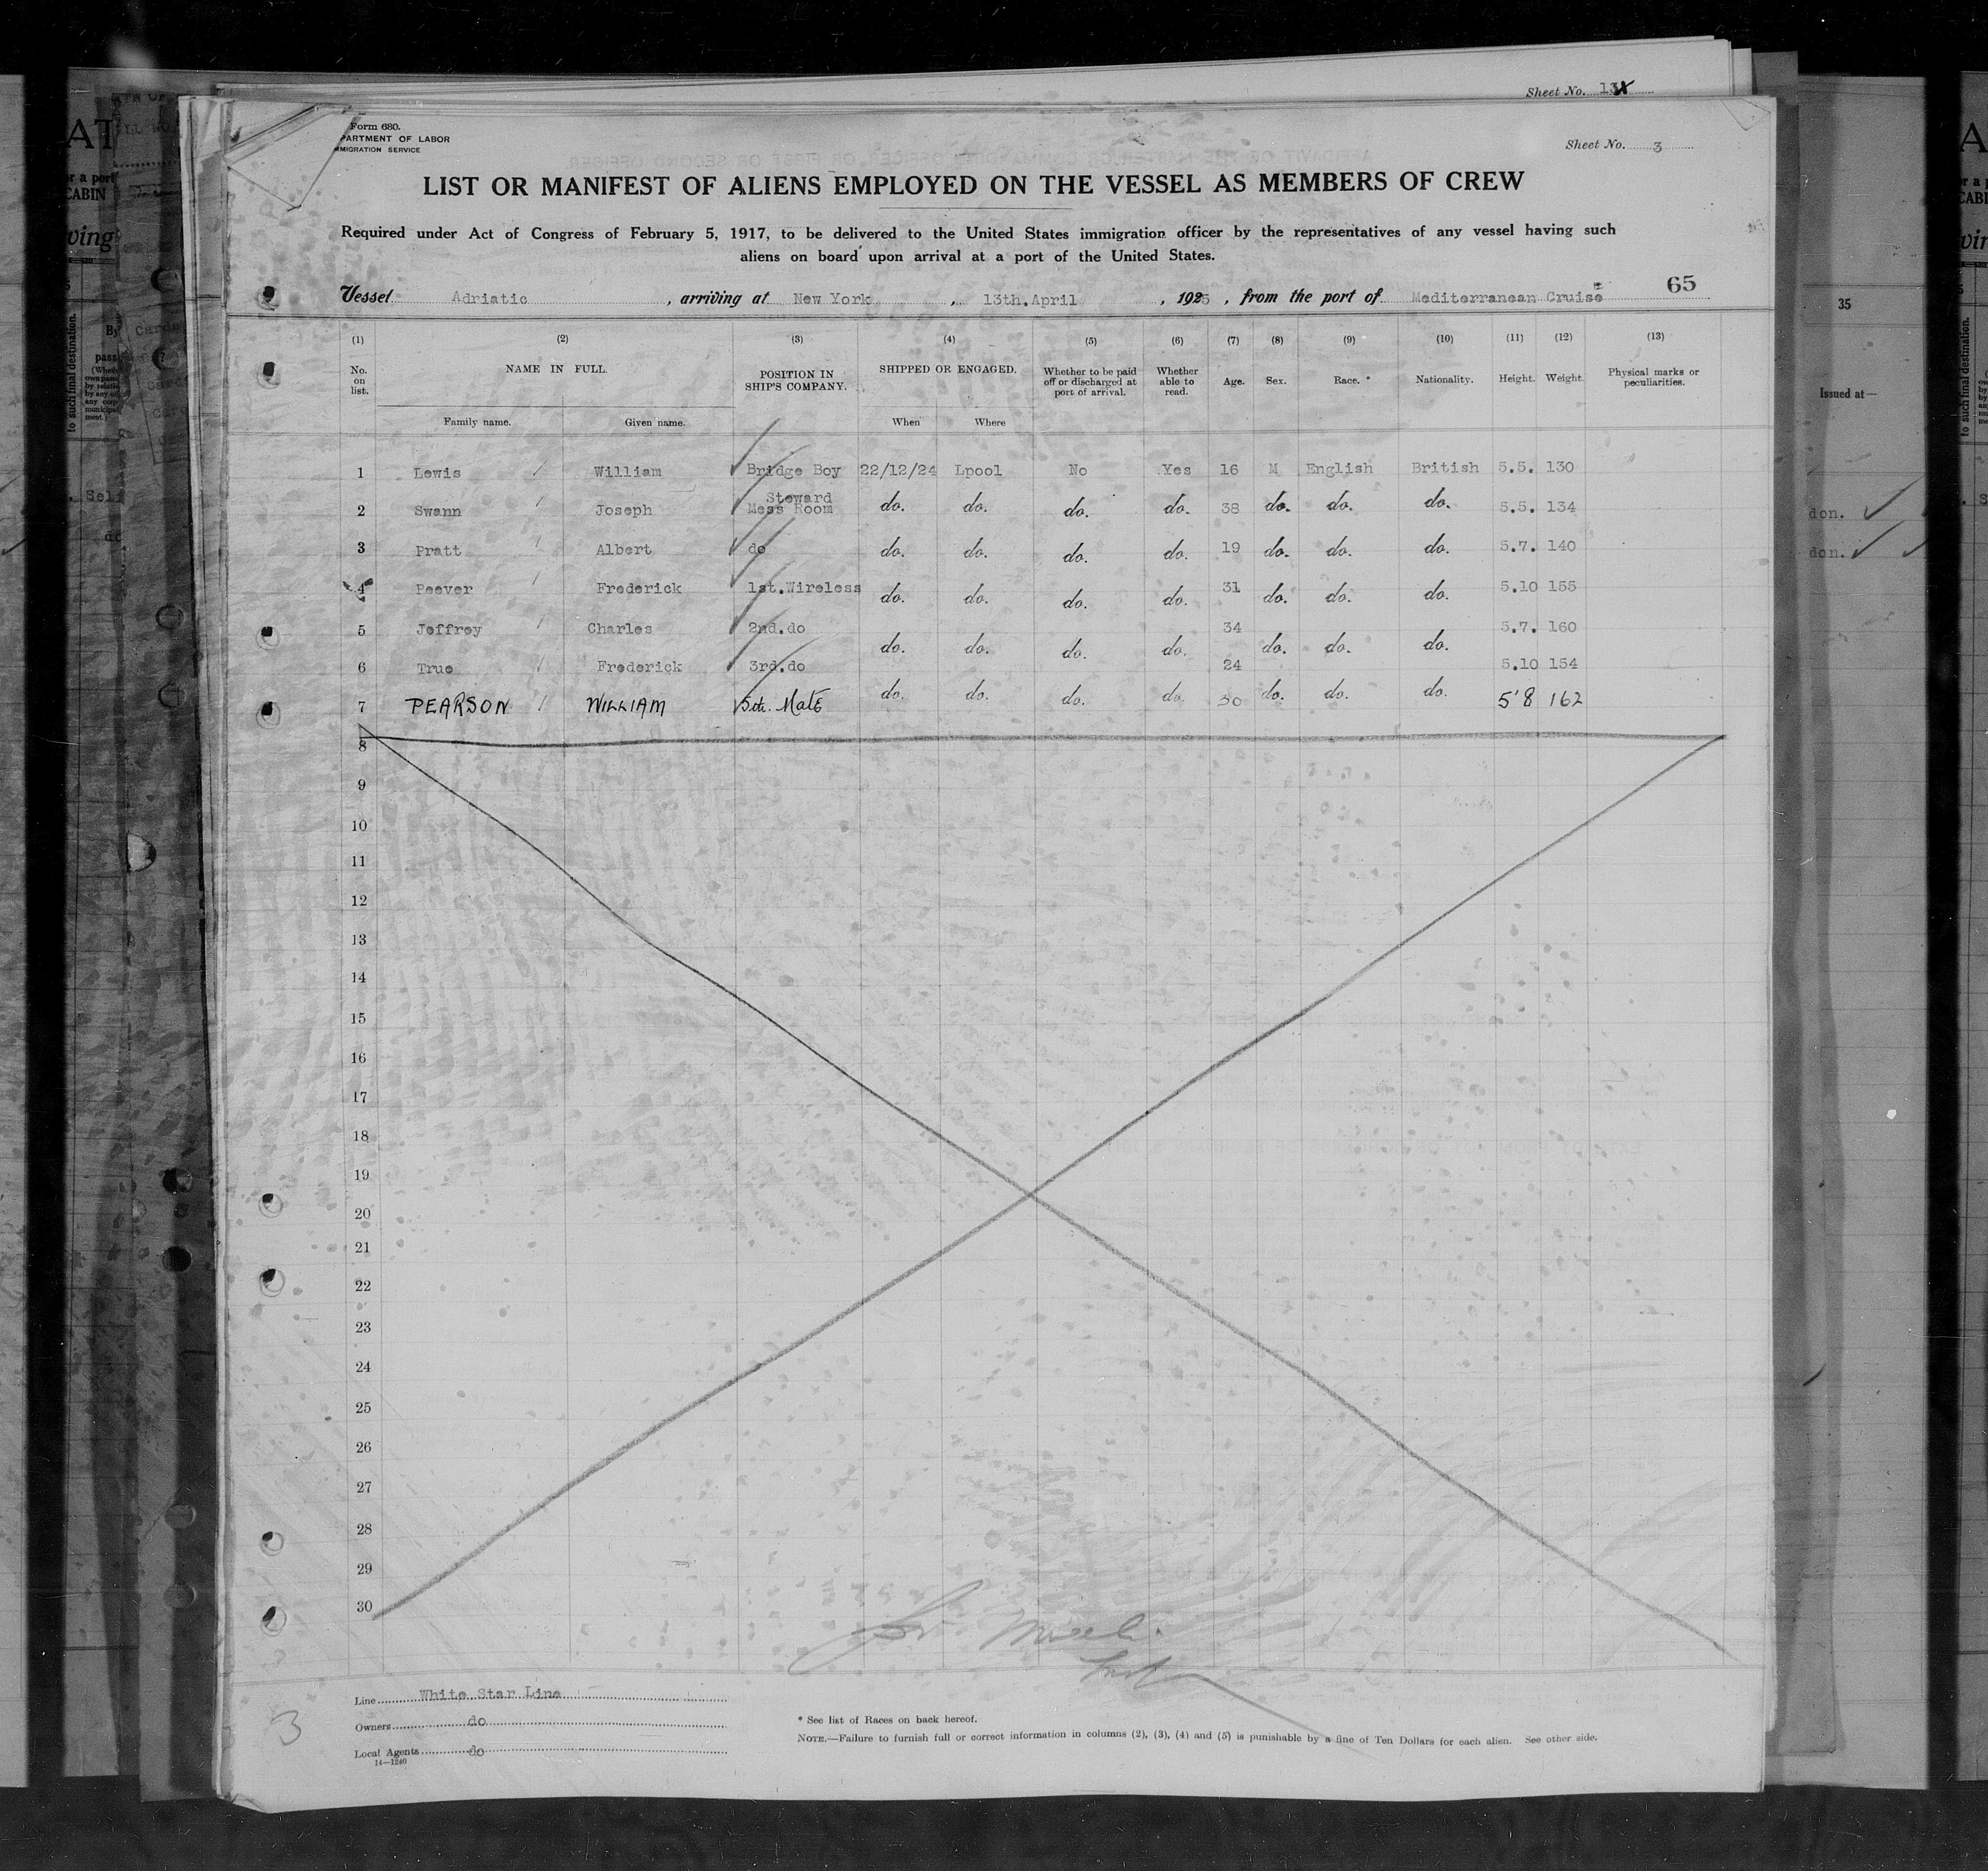 Sheet No. 13
Form 680.
PARTMENT OF LABOR
MMIGRATION SERVICE
Sheet No. 3
LIST OR MANIFEST OF ALIENS EMPLOYED ON THE VESSEL AS MEMBERS OF CREW
Required under Act of Congress of February 5, 1917, to be delivered to the United States immigration officer by the representatives of any vessel having such
aliens on board upon arrival at a port of the United States.
65
Vessel Adriatic, arriving at New York, 13th.April, 1925, from the port of Mediterranean Cruise
(1) (2) (3) (4) (5) (6) (7) (8) (9) (10) (11) (12) (13)
No. on list. NAME IN FULL. POSITION IN SHIP'S COMPANY. SHIPPED OR ENGAGED. Whether to be paid off or discharged at port of arrival. Whether able to read. Age. Sex. Race.* Nationality. Height. Weight. Physical marks or peculiarities.
Family name. Given name. When Where
1 Lewis William Bridge Boy 22/12/24 Lpool No Yes 16 M English British 5.5. 130
Steward
2 Swann Joseph Mess Room do. do. do. do. 38 do. do. do. 5.5. 134
3 Pratt Albert do do. do. do. do. 19 do. do. do. 5.7. 140
4 Peever Frederick 1st.Wireless do. do. do. do. 31 do. do. do. 5.10 155
5 Jeffrey Charles 2nd.do do. do. do. do. 34 do. do. do. 5.7. 160
6 True Frederick 3rd.do 24 5.10 154
7 PEARSON WILLIAM Mate do. do. do. do. 30 do. do. do. 5'8 162
8
9
10
11
12
13
14
15
16
17
18
19
20
21
22
23
24
25
26
27
28
29
30
Line White Star Line
Owners do
Local Agents do
14—1240
* See list of Races on back hereof.
NOTE.—Failure to furnish full or correct information in columns (2), (3), (4) and (5) is punishable by a fine of Ten Dollars for each alien. See other side.
3
35
Issued at—
don.
don.